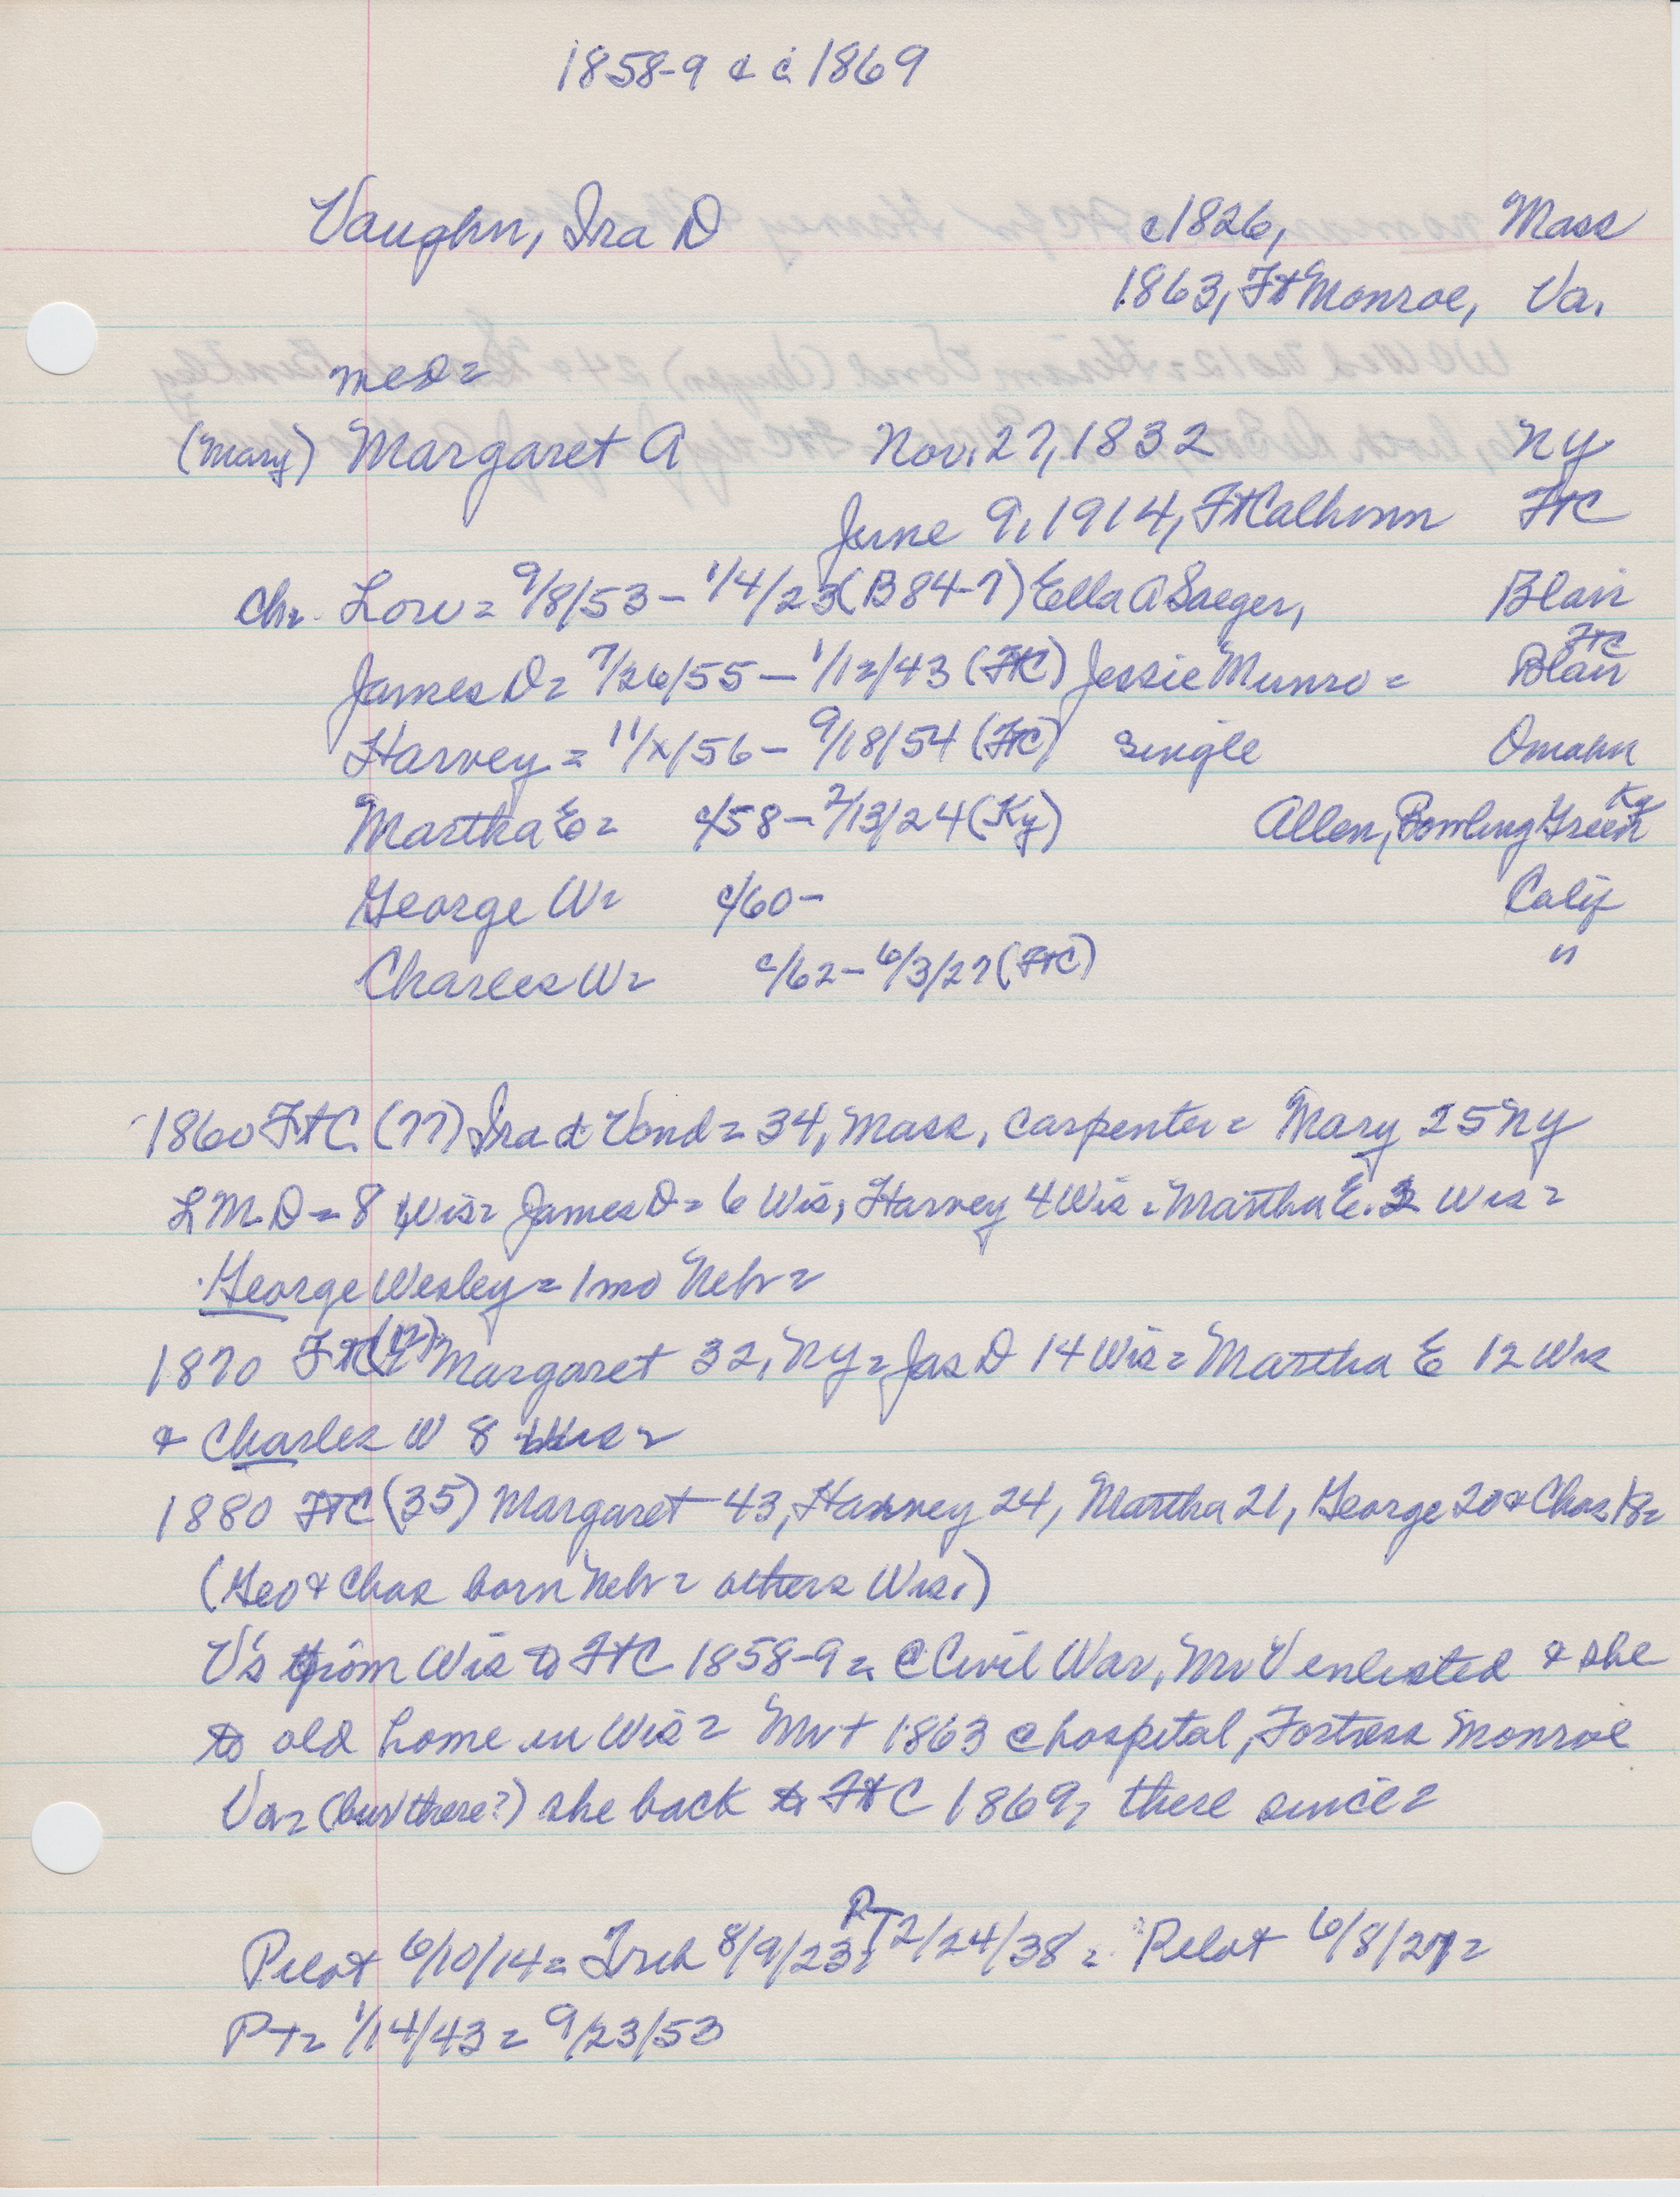 1858-9 & c 1869
Vaughn, Ira D c1826, Mass
1863, Ft Monroe, Va.
med=
(Mary) Margaret A Nov. 27, 1832 NY
June 9, 1914, Ft Calhoun FtC
Ch= Low= 9/8/53 - 1/4/23 (B84-7) Ella A Saeger, Blair
FtC
James D= 7/26/55 - 1/12/43 (FtC) Jessie Munro = Blair
Harvey = 11/x/56 - 9/18/54 (FtC) single Omaha
Ky
Martha E= c/58 - 2/13/24 (Ky) Allen, Bowling Green
George W= c/60- Calif
Charles W= c/62 - 6/3/27 (FtC) "
1860 FtC. (77) Ira d Vond = 34, Mass, carpenter = Mary 25 NY
L M. D = 8 Wis= James D= 6 Wis, Harvey 4 Wis. Martha E. 2 Wis=
George Wesley = 1 mo Nebr=
1870 FtC (12) Margaret 32, NY= Jas D 14 Wis= Martha E 12 Wis
& Charles W 8 Wis=
1880 FtC (35) Margaret 43, Harvey 24, Martha 21, George 20 & Chas 18=
(Geo & Chas born Nebr= others Wis.)
V's from Wis to FtC 1858-9= @ Civil War, Mr V enlisted & she
to old home in Wis= Mr + 1863 @ hospital, Fortress Monroe
Va= (bur there?) she back to FtC 1869, there since=
Pilot 6/10/14= 8/9/23= PT 2/24/38= Pilot 6/8/27=
PT= 1/14/43= 9/23/53